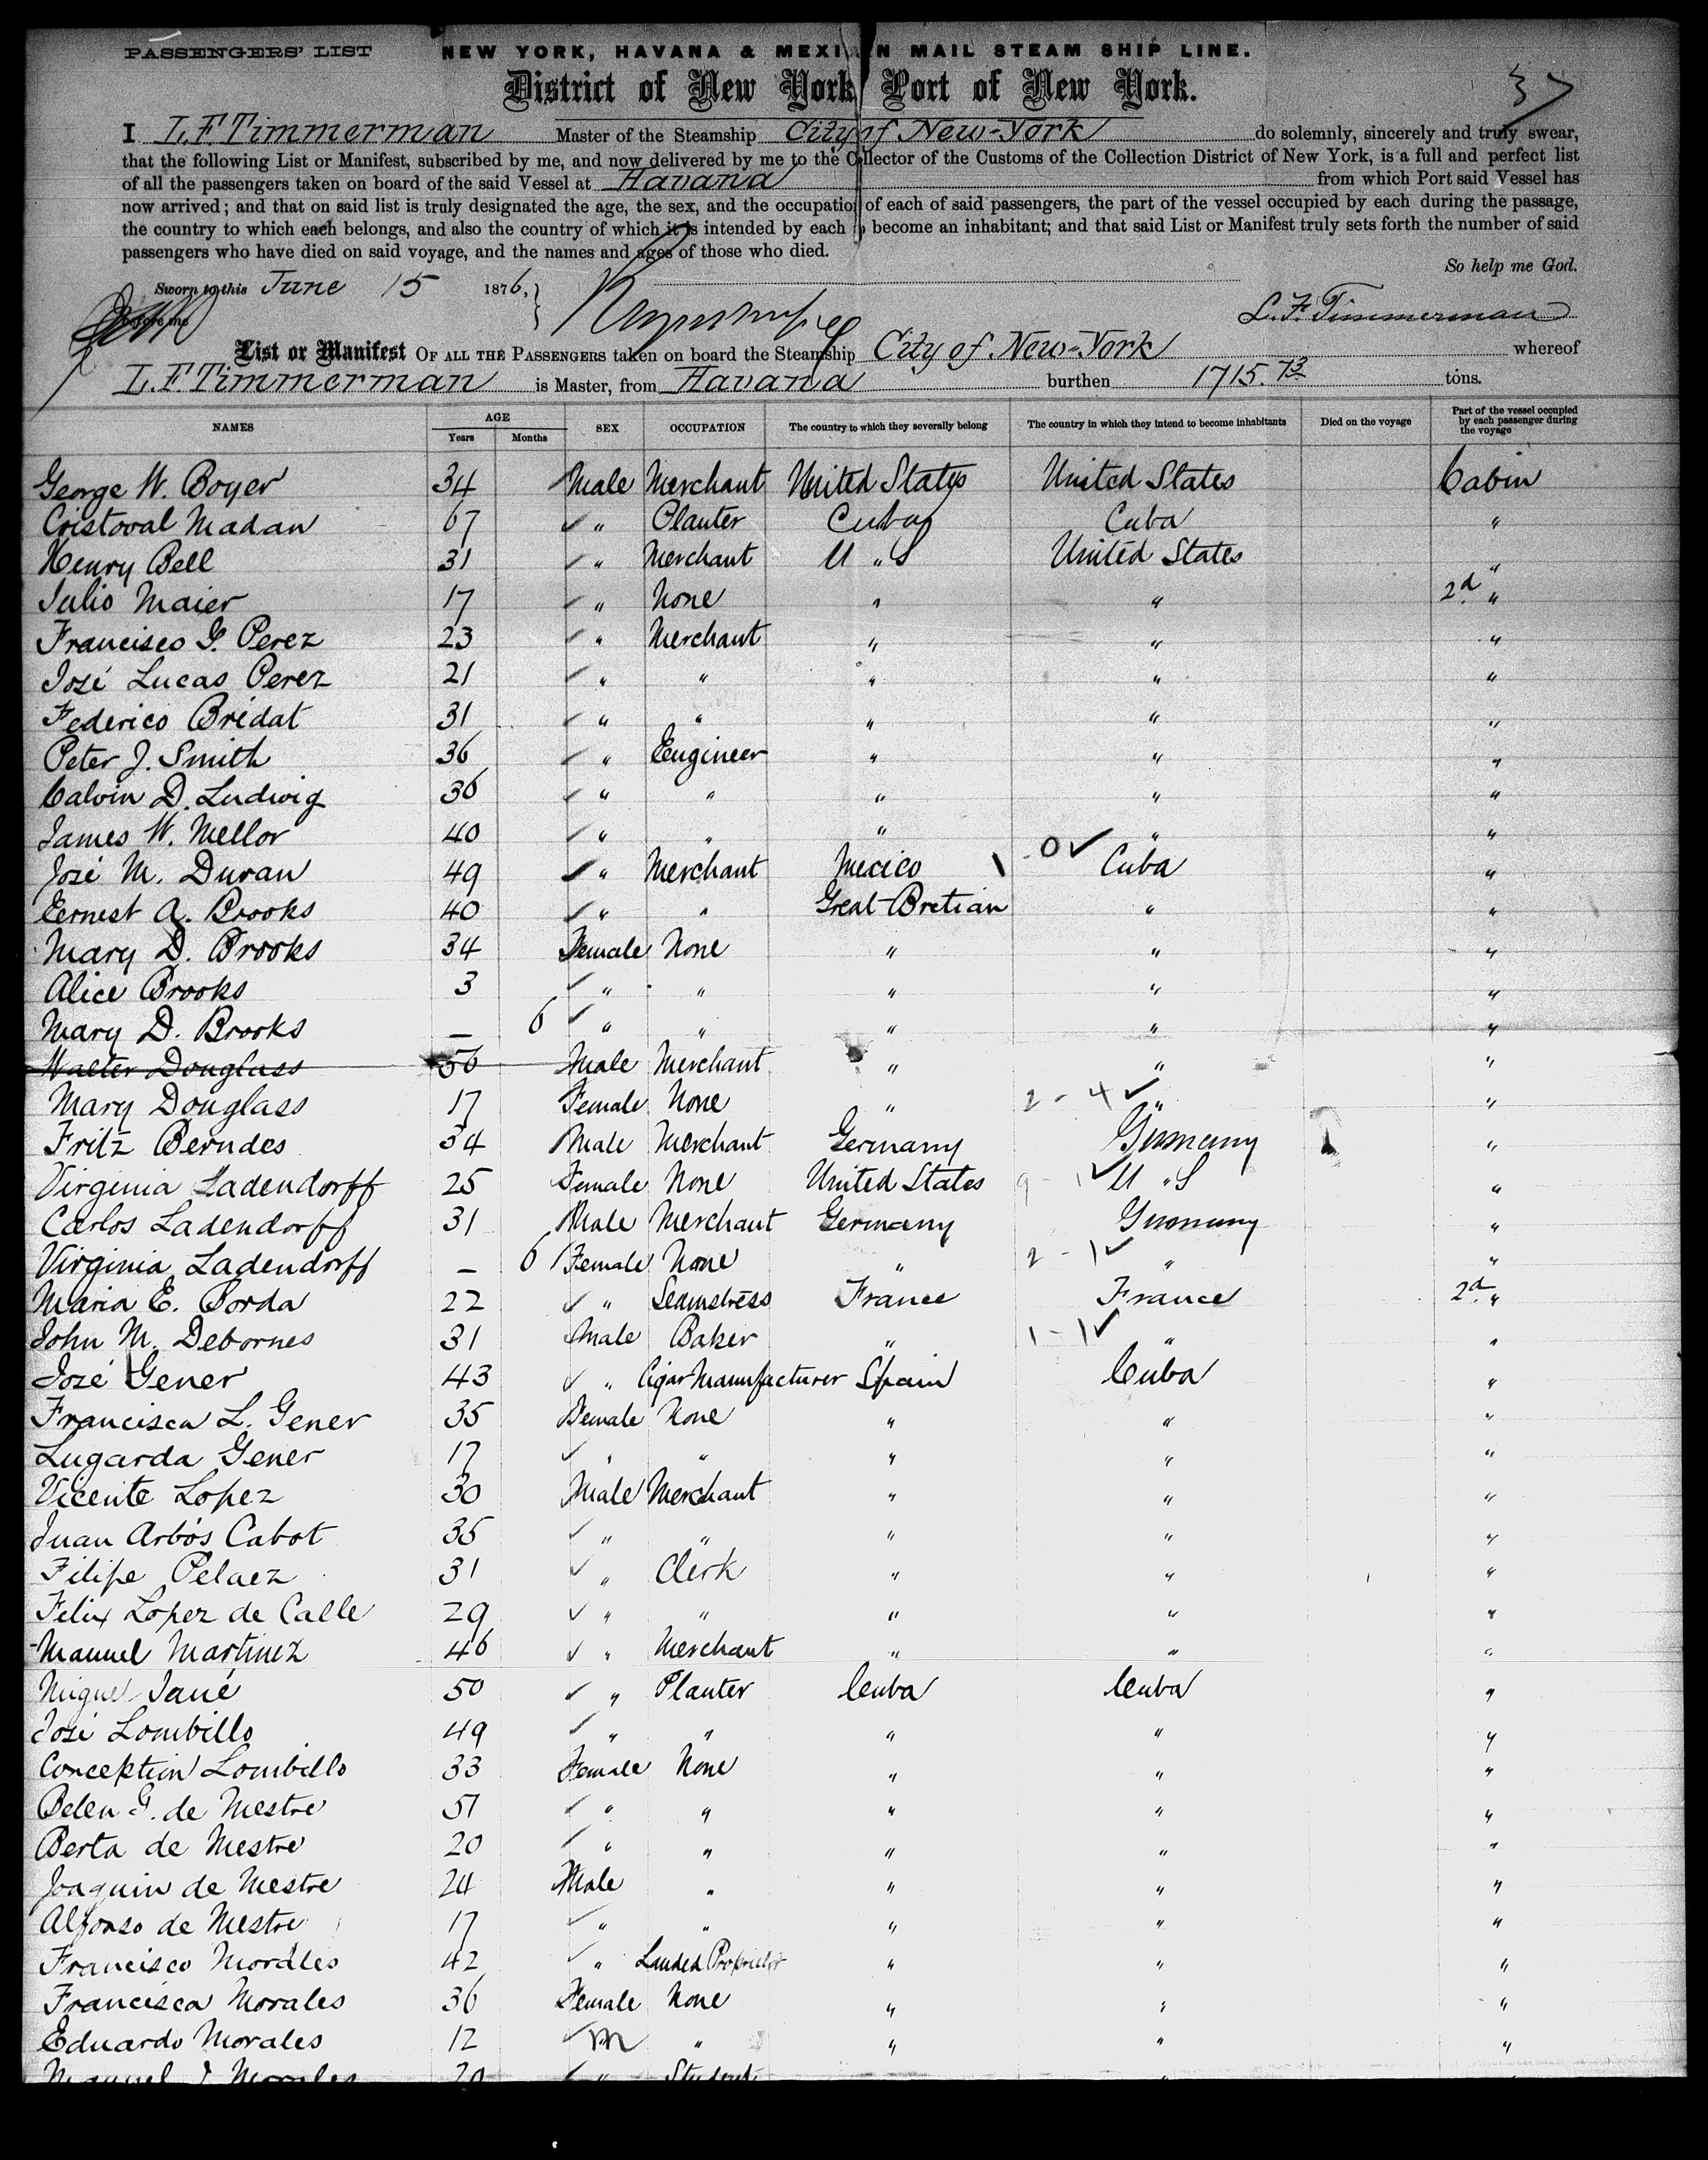 PASSENGERS' LIST NEW YORK, HAVANA & MEXI N MAIL STEAM SHIP LINE.
District of New York Port of New York.
I L.F Timmerman Master of the Steamship City of New-York do solemnly, sincerely and truly swear,
that the following List or Manifest, subscribed by me, and now delivered by me to the Collector of the Customs of the Collection District of New York, is a full and perfect list
of all the passengers taken on board of the said Vessel at Havana from which Port said Vessel has
now arrived; and that on said list is truly designated the age, the sex, and the occupation of each of said passengers, the part of the vessel occupied by each during the passage,
the country to which each belongs, and also the country of which it is intended by each to become an inhabitant; and that said List or Manifest truly sets forth the number of said
passengers who have died on said voyage, and the names and ages of those who died.
So help me God.
Sworn to this June 15 1876,
before me
L. F. Timmerman
List or Manifest OF ALL THE PASSENGERS taken on board the Steamship City of New-York whereof
L.F Timmerman is Master, from Havana burthen 1715.73 tons.
NAMES AGE Years Months SEX OCCUPATION The country to which they severally belong The country in which they intend to become inhabitants Died on the voyage Part of the vessel occupied by each passenger during the voyage
George W. Boyer 34 Male Merchant United States United States Cabin
Cristoval Madan 67 " Planter Cuba Cuba "
Henry Bell 31 " Merchant U " S United States "
Julio Maier 17 " None " " 2d "
Francisco G. Perez 23 " Merchant " " "
José Lucas Perez 21 " " " " "
Federico Bridat 31 " " " " "
Peter J. Smith 36 " Eengineer " " "
Calvin D. Ludwig 36 " " " " "
James W. Mellor 40 " " " " "
José M. Duran 49 " Merchant Mexico 0 ✓ Cuba "
Eernest A. Brooks 40 " " Great-Bretian " "
Mary D. Brooks 34 Female None " " "
Alice Brooks 3 " " " " "
Mary D. Brooks — 6 " " " " "
Walter Douglass 56 Male Merchant " " "
Mary Douglass 17 Female None " 2 - 4 ✓ " "
Fritz Berndes 34 Male Merchant Germany Germany "
Virginia Ladendorff 25 Female None United States 9 - 1 ✓ U " S "
Carlos Ladendorff 31 Male Merchant Germany Germany "
Virginia Ladendorff — 6 Female None " 2 - 1 ✓ " "
Maria E. Borda 22 " Seamstress France France 2d "
John M. Debornes 31 Male Baker " 1 - 1 ✓ " "
José Gener 43 " Cigar Manufacturer Spain Cuba "
Francisca L. Gener 35 Female None " " "
Lugarda Gener 17 " " " " "
Vicente Lopez 30 Male Merchant " " "
Juan Arbós Cabot 35 " " " " "
Filipe Pelaez 31 " Clerk " " "
Felix Lopez de Calle 29 " " " " "
Manuel Martinez 46 " Merchant " " "
Miguel Jané 50 " Planter Cuba Cuba "
José Lombillo 49 " " " " "
Conception Lombillo 33 Female None " " "
Belen G. de Mestre 51 " " " " "
Berta de Mestre 20 " " " " "
Joaquin de Mestre 24 Male " " " "
Alfonso de Mestre 17 " " " " "
Francisco Morales 42 " Landed Proprietor " " "
Francisca Morales 36 Female None " " "
Eduardo Morales 12 m " " " "
Manuel J Morales 20 " Student "